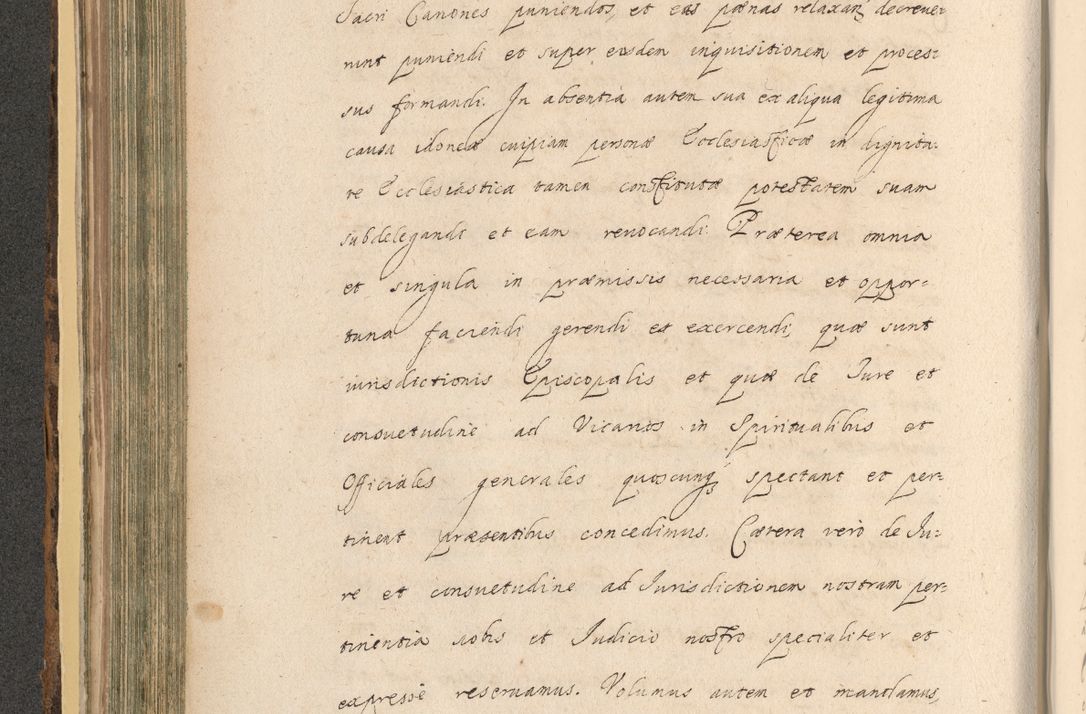 Sacri Canones puniendos, et eas pœnas relaxan̄ decreue-
runt puniendi et super eisdem inquisitionem et proces:
sus formandi. In absentia autem sua ex aliqua legitima
causa idoneæ cuipiam personæ Ecclesiasticæ in dignita:
te Ecclesiastica tamen constitutæ potestatem suam
subdelegandi et eam reuocandi. Præterea omnia
et singula in præmissis necessaria et oppor:
tuna faciendi gerendi et exercendi, quæ sunt
iurisdictionis Episcopalis et quæ de Iure et
consuetudine ad Vicarios in Spiritualibus et
Officiales generales quoscunq; spectant et per:
tinent præsentibus concedimus. Cætera verò de Iu:
re et consuetudine ad Iurisdictionem nostram per:
tinentia nobis et Iudicio nostro specialiter et
expressè reseruamus. Volumus autem et mandamus,